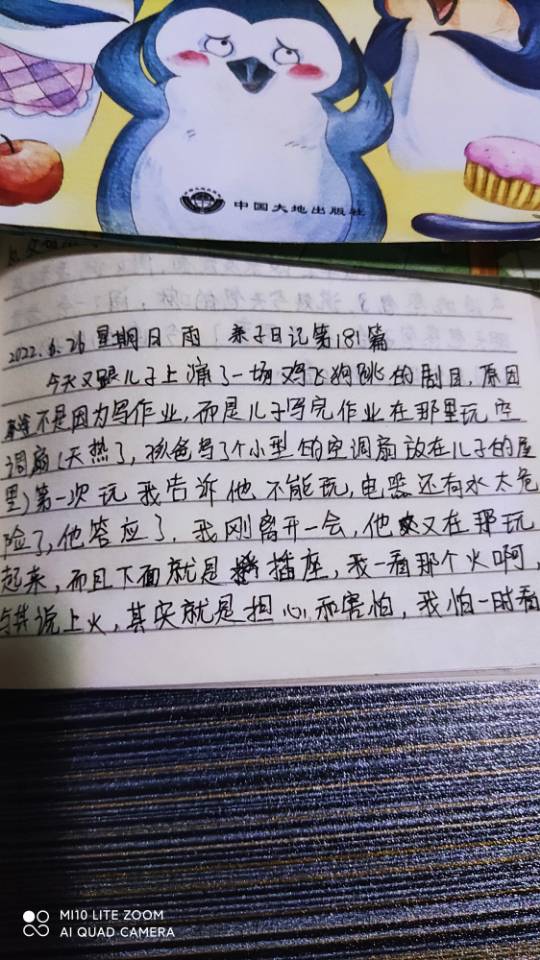 中国大地出版社
2022.6.26 星期日 雨 亲子日记第181篇
今天又跟儿子上演了一场鸡飞狗跳的剧目,原因
不是因为写作业,而是儿子写完作业在那里玩空
调扇(天热了,孩爸写了个小型的空调扇放在儿子的屋
里)第一次玩我告诉他不能玩,电器还有水太危
险了,他答应了,我刚离开一会,他又在那玩
起来,而且下面就是插座,我一看那个火啊,
与其说上火,其实就是担心和害怕,我怕一时看
MI10 LITE ZOOM
AI QUAD CAMERA